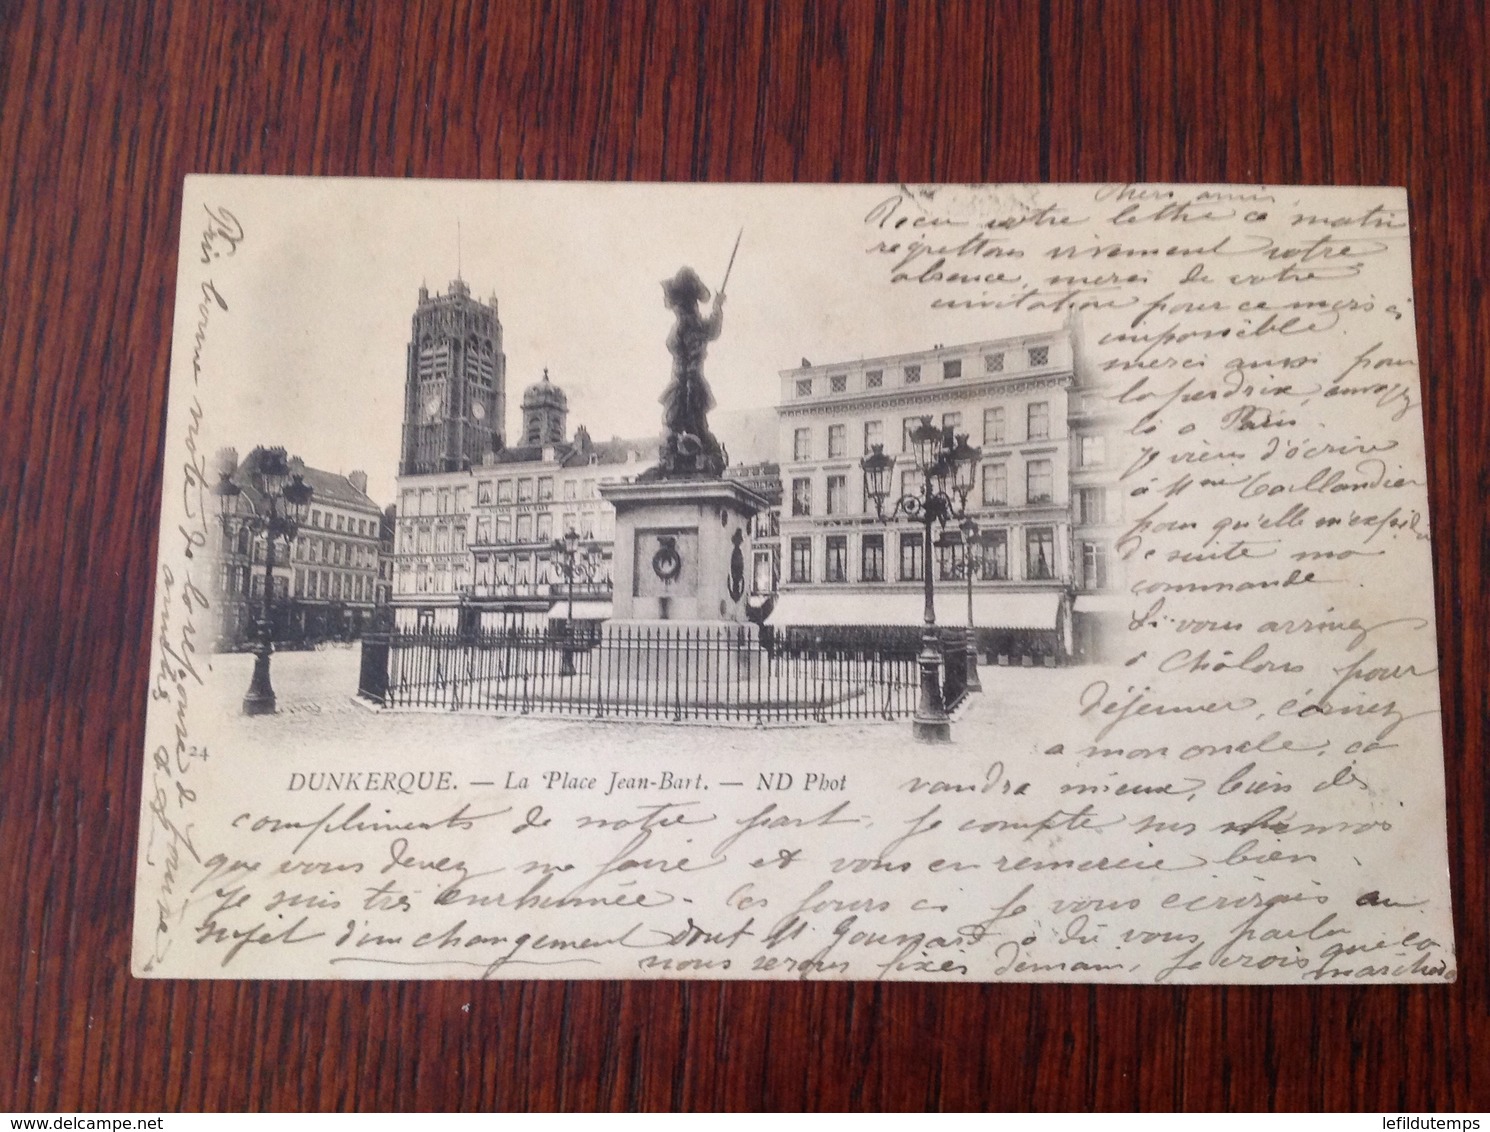 Chers amis
Reçu votre lettre ce matin
regrettons vivement votre
absence, merci de votre
invitation pour ce mois ci
impossible.
merci aussi pour
la perdrix, envoyez
la a Paris.
Je viens d'écrire
à Mme Taillandier
pour qu'elle m'expédie
de suite ma
commande.
Si vous arrivez
à Châlons pour
déjeuner, écrivez
a mon oncle, ca
vaudra mieux, bien des
24
DUNKERQUE. — La Place Jean-Bart. — ND Phot
compliments de notre part, Je compte sur
que vous devez me faire et vous en remercie bien
Je suis très enrhumée. Ces jours ci Je vous écrirais au
sujet d'un changement dont M. a dû vous parler
nous serons fixés demain, Je crois que ca
marchera
Pris bonne note de la réponse de Louise
amitiés à
lefildutemps
www.delcampe.net